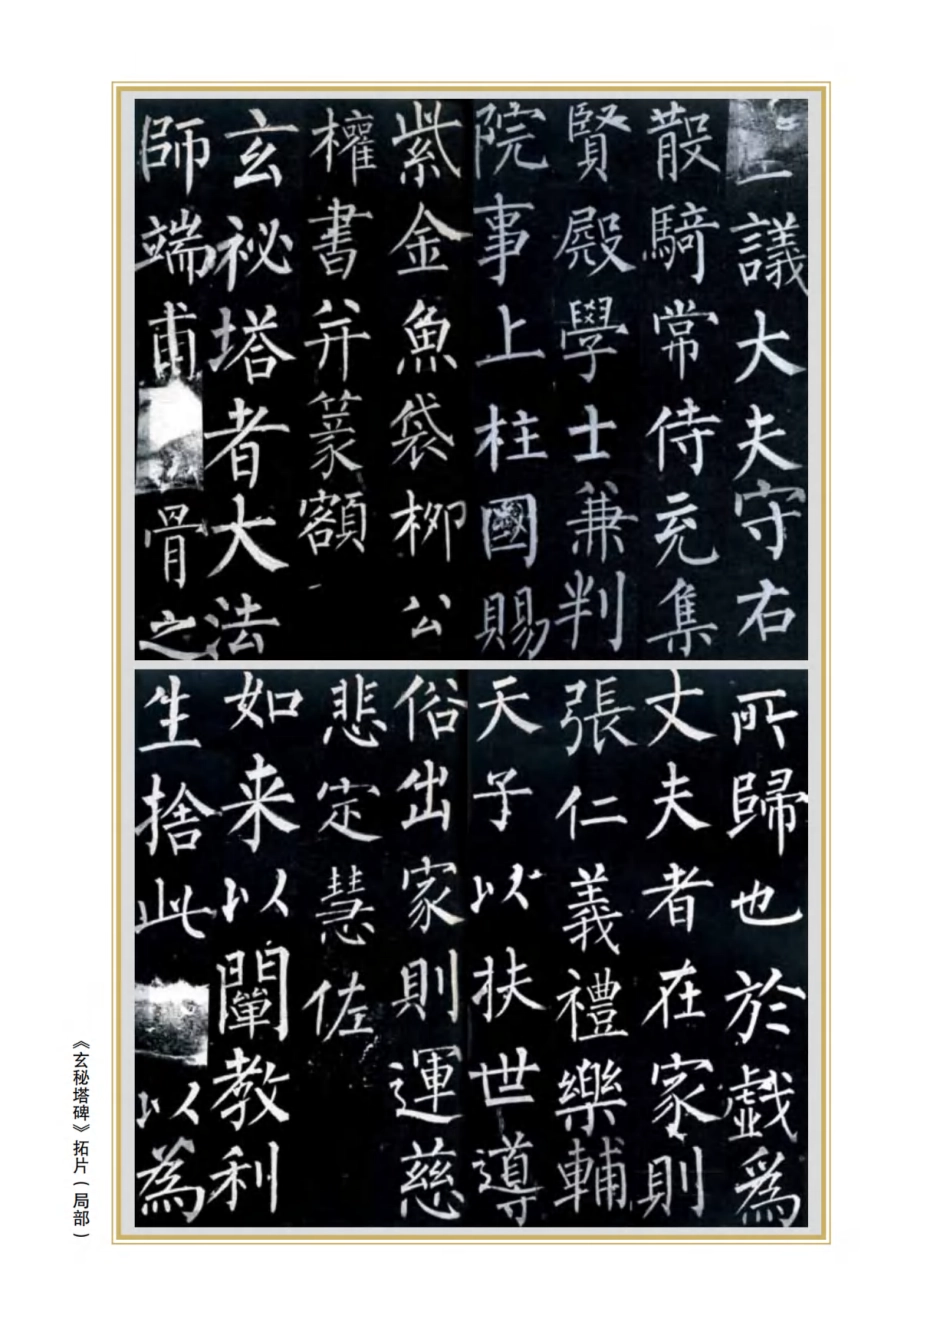 議大夫守右
散騎常侍充集
賢殿學士兼判
院事上柱國賜
紫金魚袋柳公
權書并篆額
玄祕塔者大法
師端甫骨之
所歸也於戲爲
丈夫者在家則
張仁義禮樂輔
天子以扶世導
俗出家則運慈
悲定慧佐
如来以闡教利
生捨此以為
《玄秘塔碑》拓片(局部)